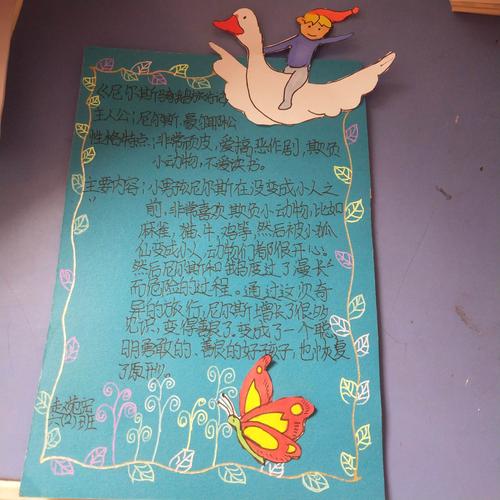 《尼尔斯骑鹅旅行记
主人公：尼尔斯．豪尔耶松
性格特点：非常顽皮，爱搞恶作剧，欺负
小动物，不爱读书。
主要内容：小男孩尼尔斯在没变成小人之
前，非常喜欢欺负小动物，比如
麻雀，猫，牛，鸡等，然后被小狐
仙变成小人，动物们都很开心。
然后尼尔斯和鹅度过了漫长
而危险的过程。通过这次奇
异的旅行，尼尔斯增长了很多
见识，变得善良了，变成了一个聪
明勇敢的、善良的好孩子，也恢复
了原形。
班